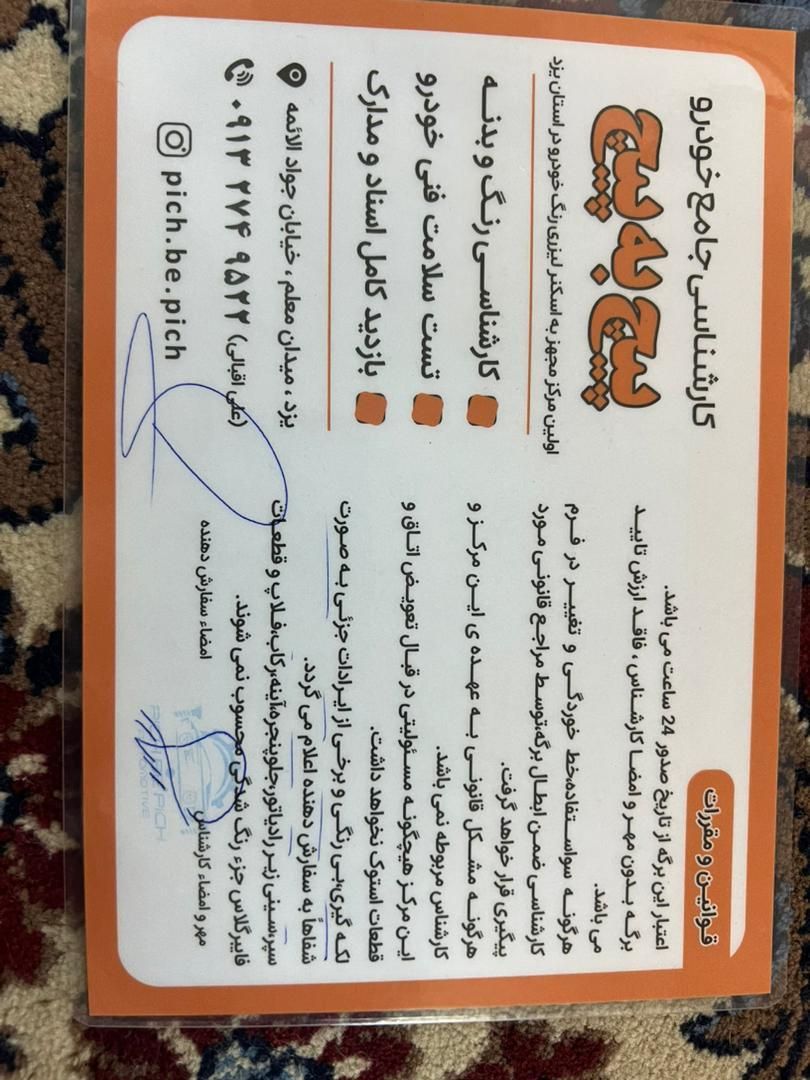 کارشناسی جامع خودرو
پیچ به پیچ
اولین مرکز مجهز به اسکنر لیزری رنگ خودرو در استان یزد
کارشناسی رنگ و بدنه
تست سلامت فنی خودرو
بازدید کامل اسناد و مدارک
یزد، میدان معلم، خیابان جواد الائمه
۰۹۱۳ ۲۷۴ ۹۵۲۲ (علی اقبالی)
pich.be.pich
قوانین و مقررات
اعتبار این برگه از تاریخ صدور 24 ساعت می باشد.
برگه بدون مهر و امضا کارشناس، فاقد ارزش تایید
می باشد.
هرگونه سواستفاده،خط خوردگی و تغییر در فرم
کارشناسی ضمن ابطال برگه،توسط مراجع قانونی مورد
پیگیری قرار خواهد گرفت.
هرگونه مشکل قانونی به عهده ی این مرکز و
کارشناس مربوطه نمی باشد.
این مرکز هیچگونه مسئولیتی در قبال تعویض اتاق و
قطعات استوک نخواهد داشت.
لکه گیری،بی رنگی و برخی از ایرادات جزئی به صورت
شفاهاً به سفارش دهنده اعلام می گردد.
سپر،سینی زیر رادیاتور،جلوپنجره،آینه،رکاب،فلاپ و قطعات
فایبرگلاس جزء رنگ شدگی محسوب نمی شوند.
مهر و امضاء کارشناس
امضاء سفارش دهنده